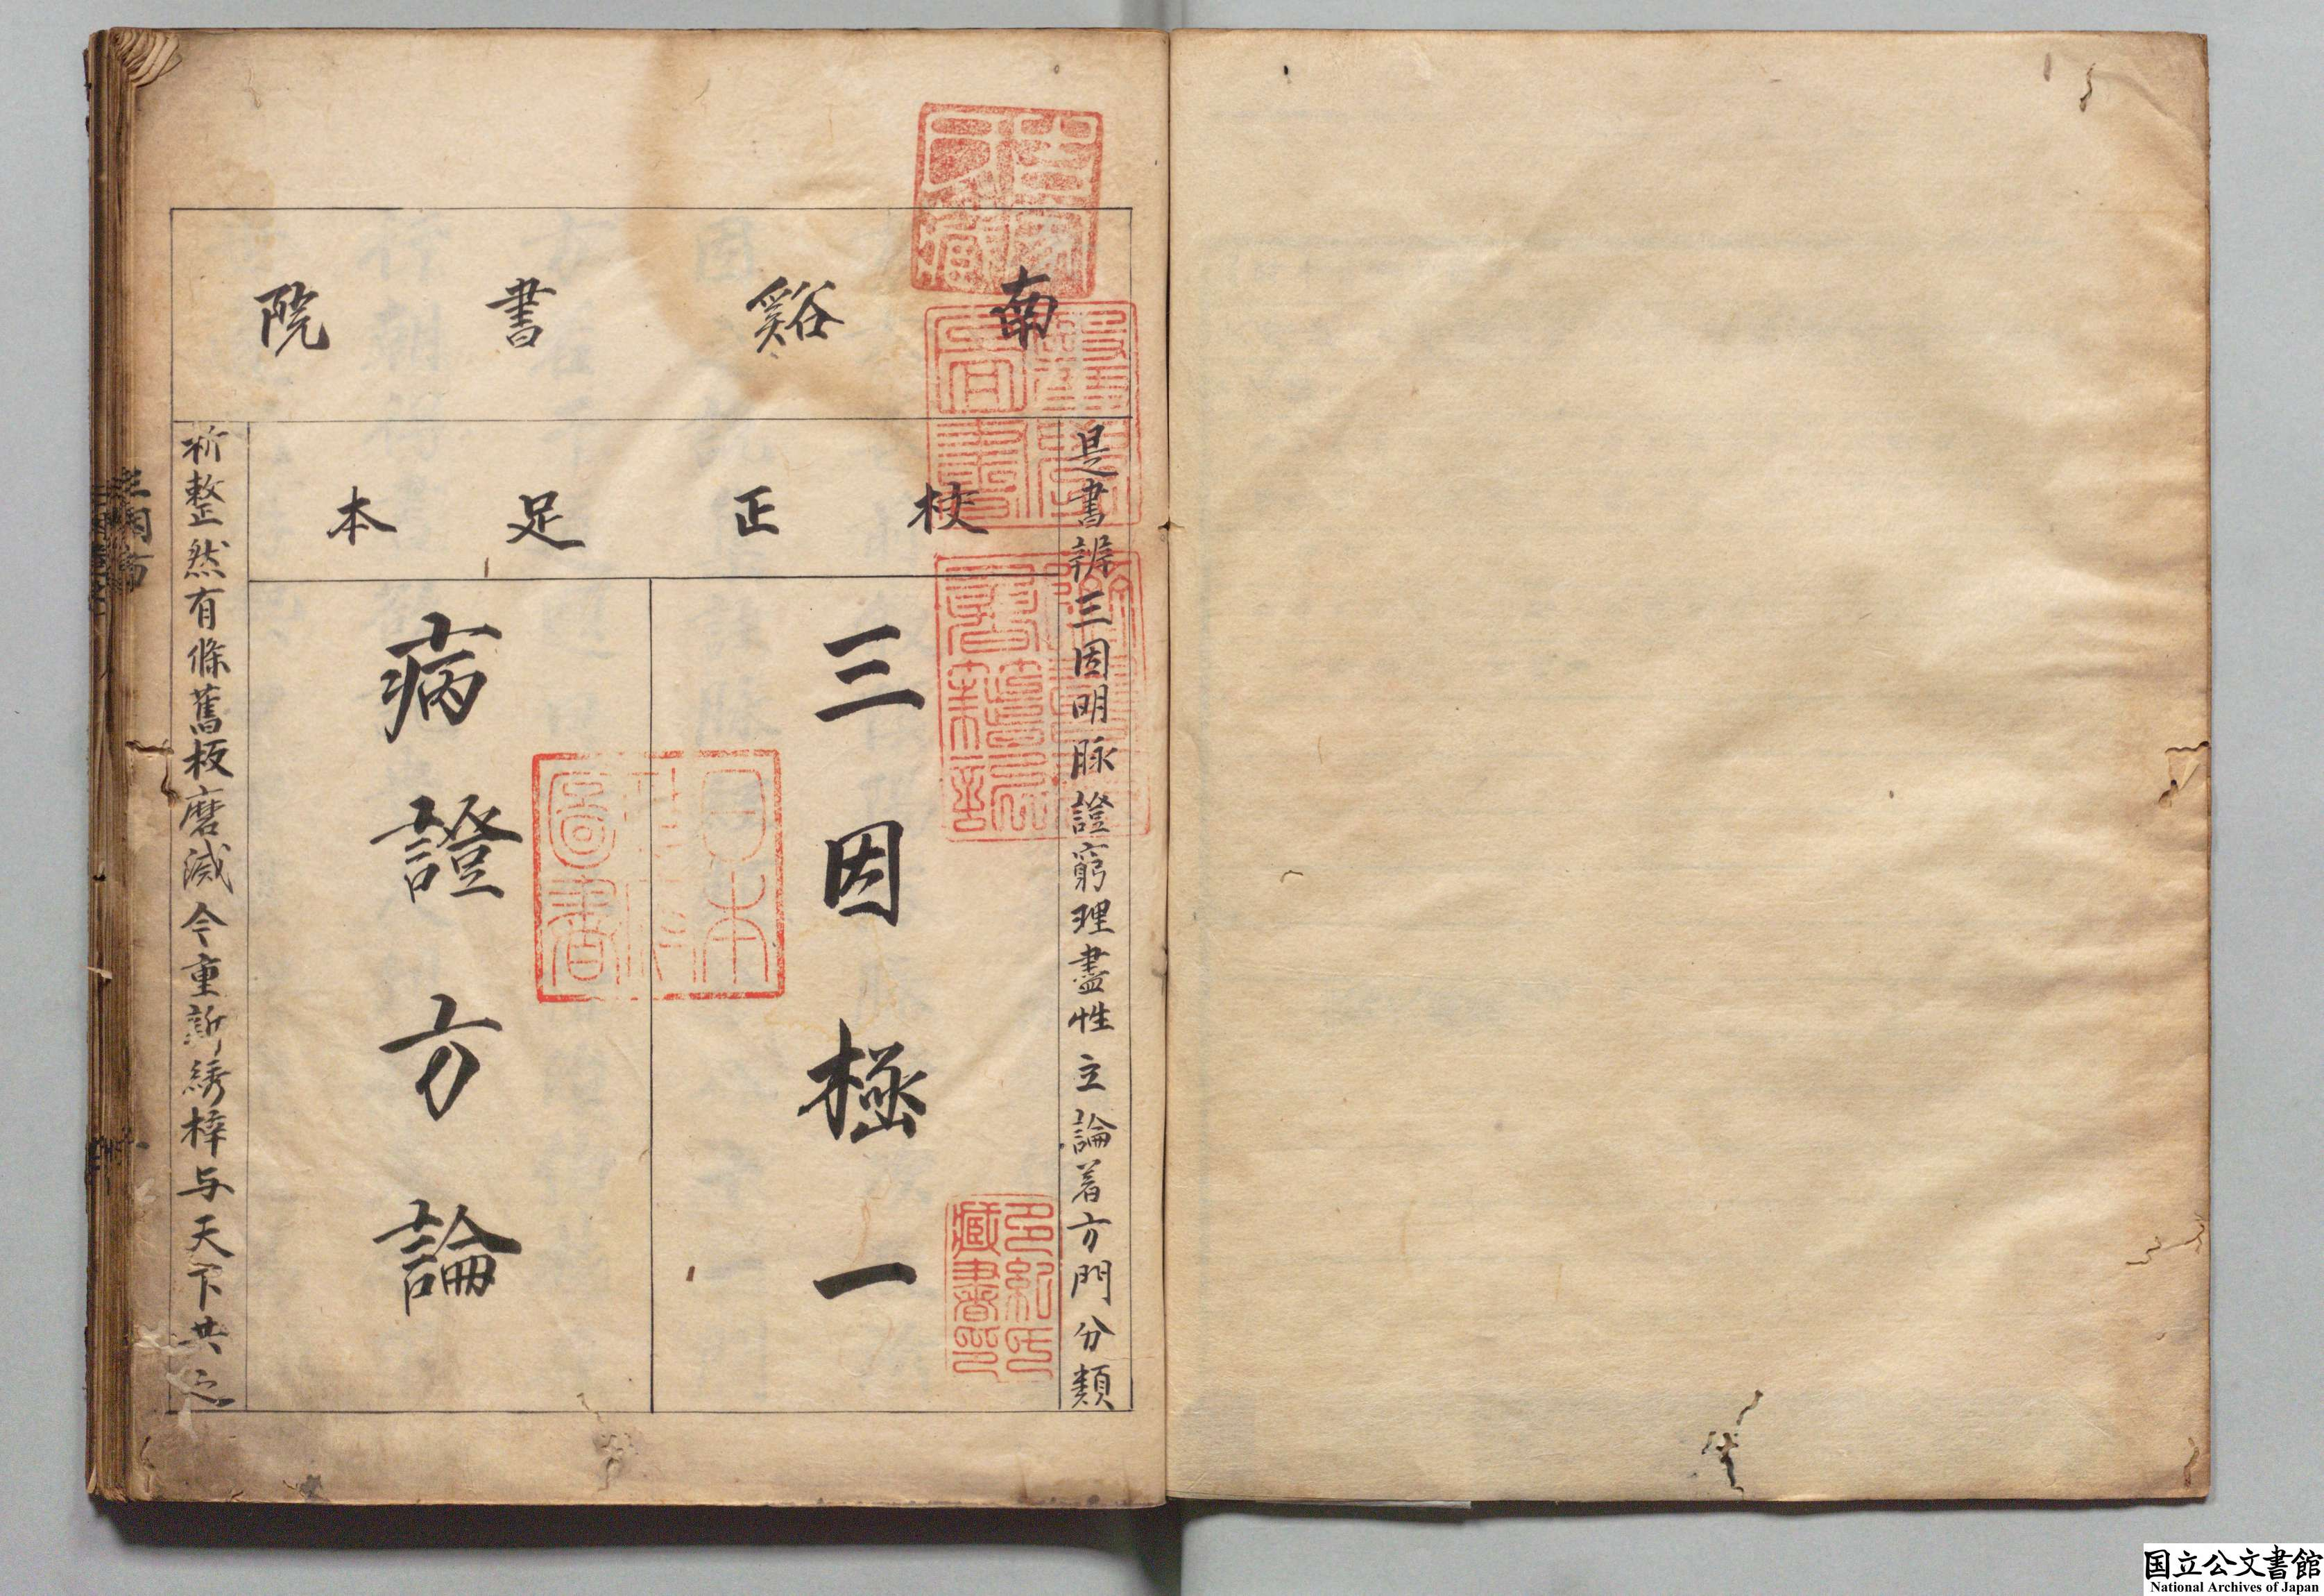 南谿書院
校正足本
是書辨三因明脉證窮理盡性立論着方門分類
三因極一
病證方論
析整然有條舊板磨滅今重新綉梓与天下共之
日本
圖書
多紀氏
藏書印
国立公文書館
National Archives of Japan